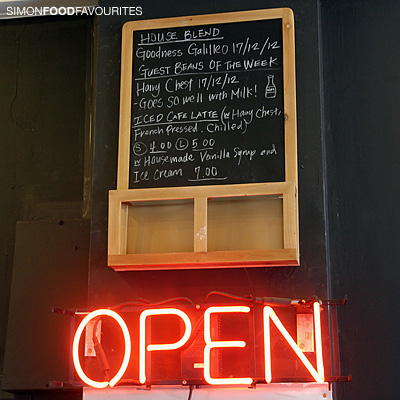 SIMONFOODFAVOURITES
HOUSE BLEND
Goodness Galileo 17/12/12
GUEST BEANS OF THE WEEK
Hairy Chest 17/12/12
-GOES SO WELL WITH MILK!
ICED CAFE LATTE (w Hairy Chest,
French Pressed. Chilled)
S 4.00 L 5.00
w Housemade Vanilla Syrup and
Ice Cream 7.00
OPEN